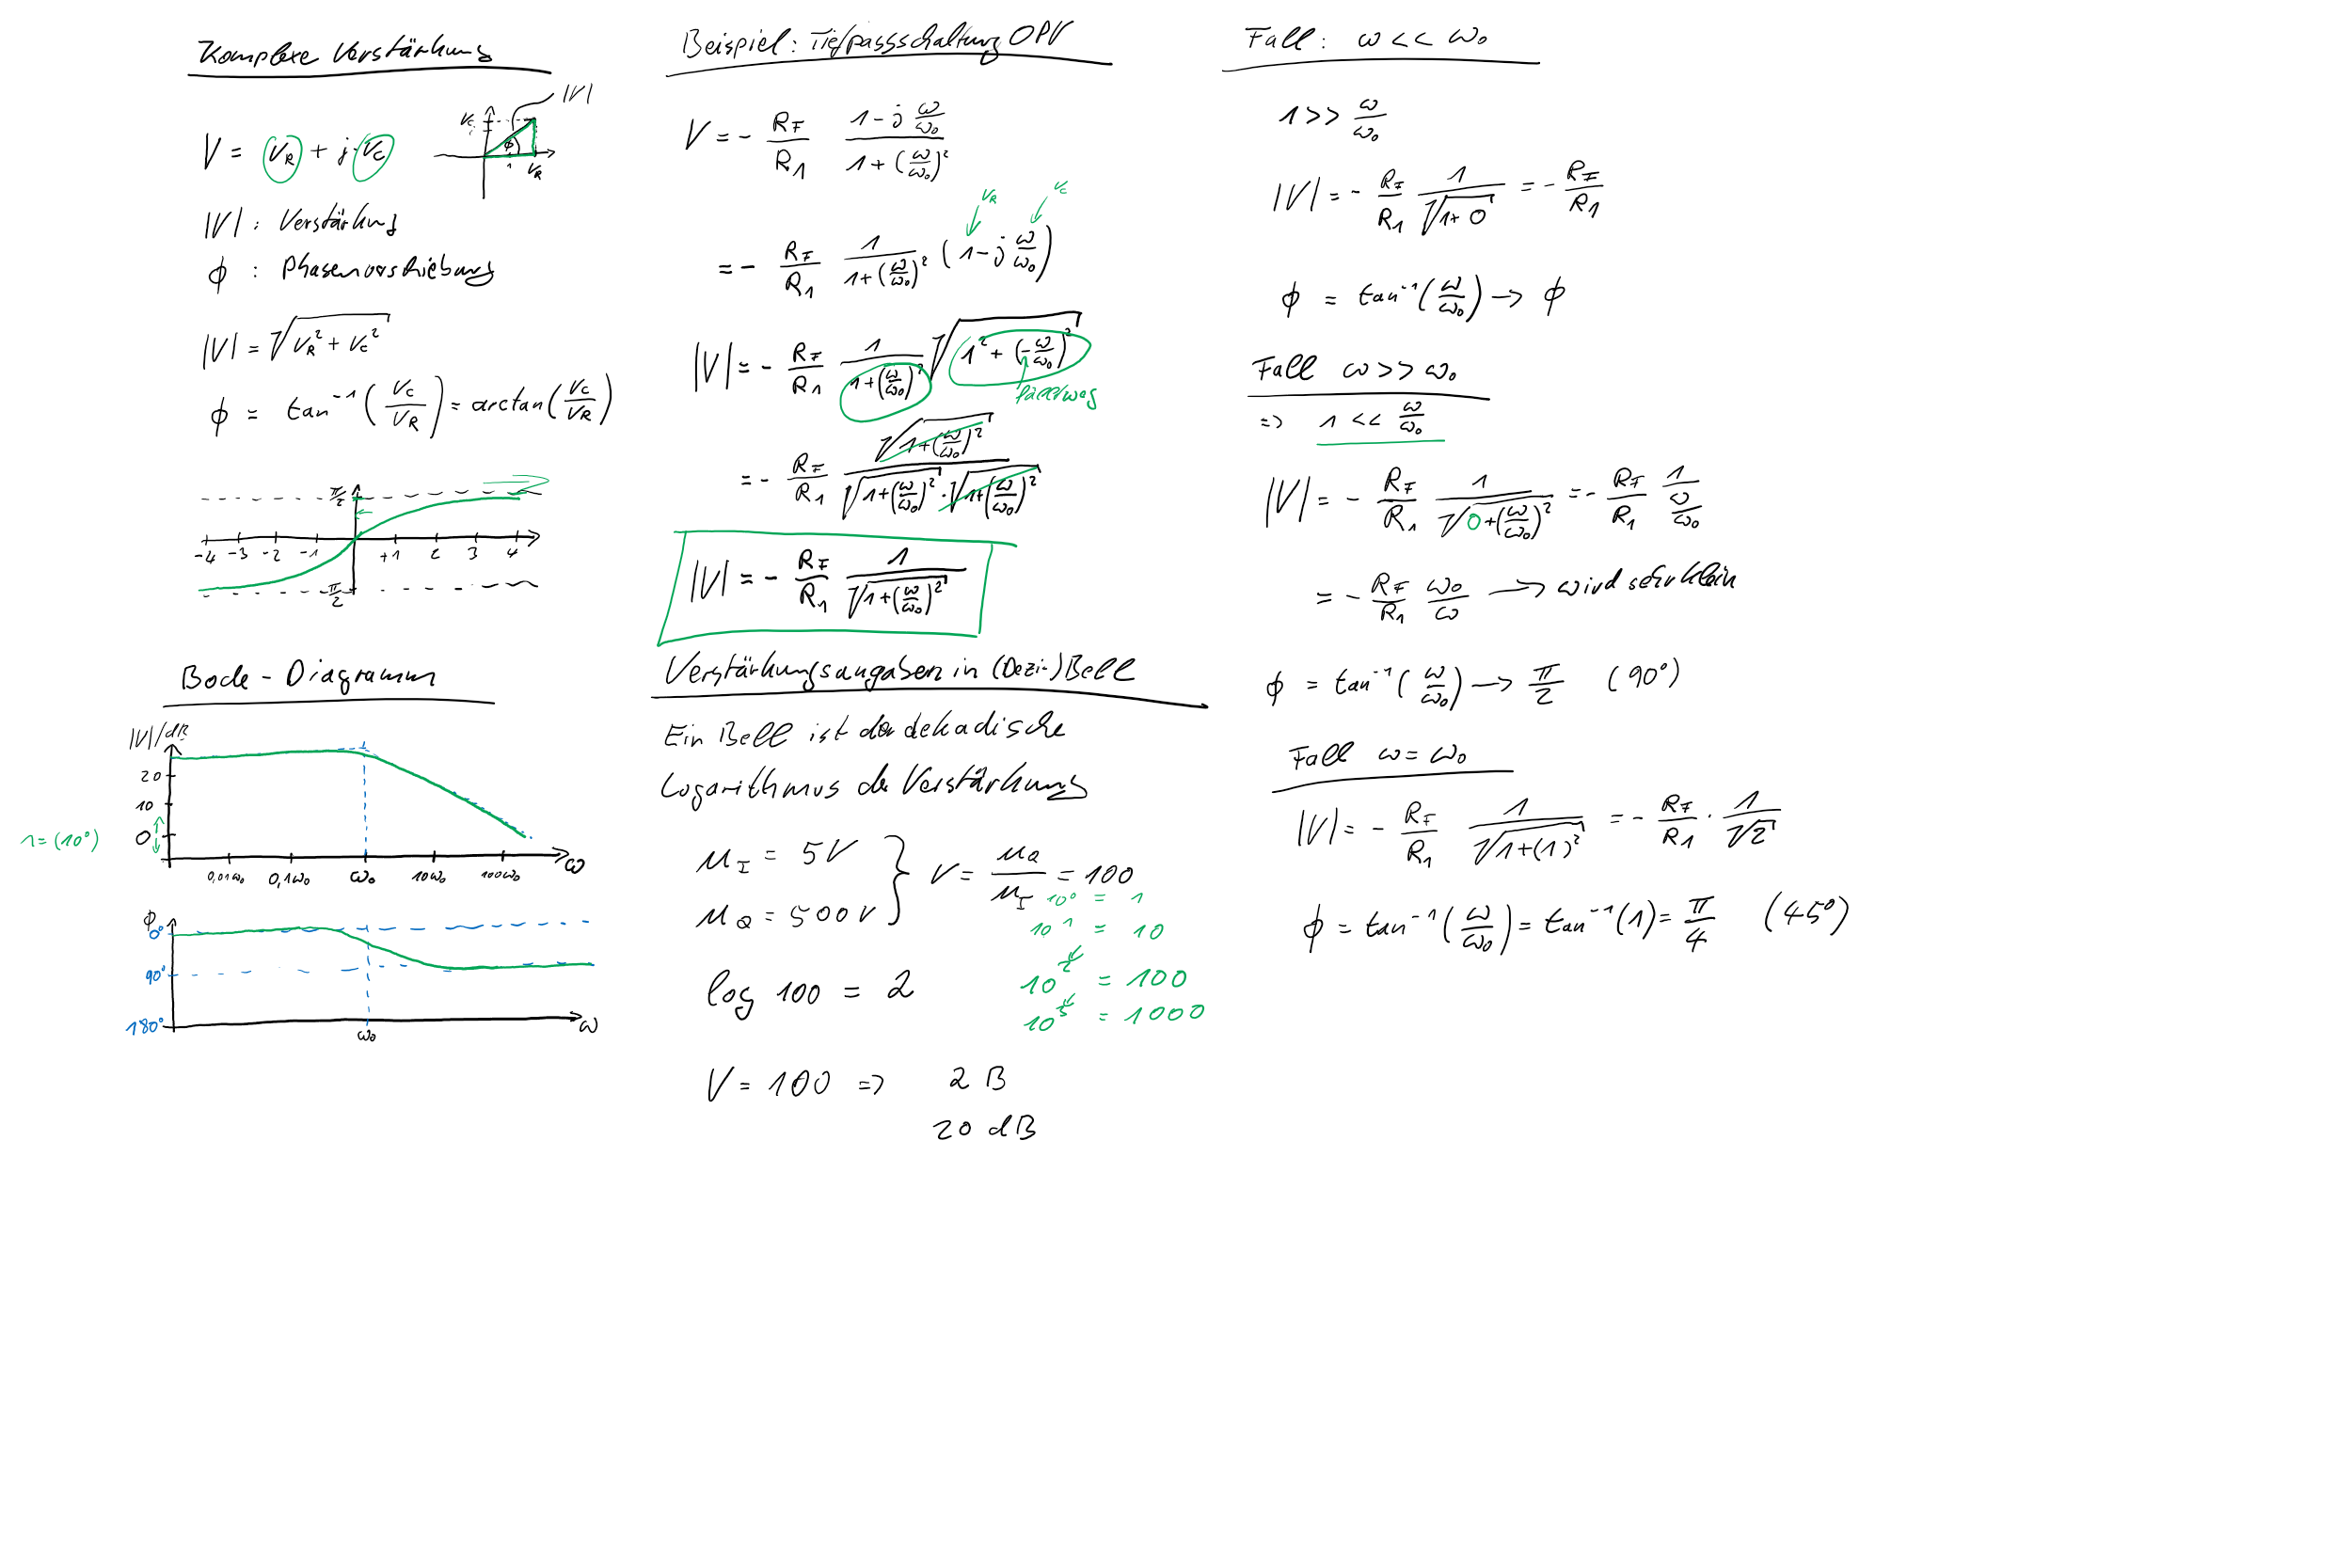 Komplexe Verstärkung
|V|
V_C
ϕ
1
V_R
V = V_R + j·V_C
|V| : Verstärkung
ϕ : Phasenverschiebung
|V| = √(V_R² + V_C²)
ϕ = tan⁻¹(V_C/V_R) = arctan(V_C/V_R)
π/2
-4 -3 -2 -1 +1 2 3 4
-π/2
Bode - Diagramm
|V|/dB
20
10
0
1=(10⁰)
0,01ω₀ 0,1ω₀ ω₀ 10ω₀ 100ω₀ ω
ϕ
0°
90°
180°
ω₀ ω
Beispiel: Tiefpassschaltung OPV
V = - R_F/R_1 (1 - j ω/ω₀)/(1 + (ω/ω₀)²)
V_R V_C
= - R_F/R_1 1/(1+(ω/ω₀)²) (1 - j ω/ω₀)
|V| = - R_F/R_1 1/(1+(ω/ω₀)²) √(1² + (-ω/ω₀)²)
= - R_F/R_1 √(1+(ω/ω₀)²)/(√(1+(ω/ω₀)²)·√(1+(ω/ω₀)²))
|V| = - R_F/R_1 1/√(1+(ω/ω₀)²)
Verstärkungsangaben in (Dezi-)Bell
Ein Bell ist der dekadische
Logarithmus der Verstärkung
u_I = 5V
u_Q = 500V
V = u_Q/u_I = 100
10⁰ = 1
10¹ = 10
10² = 100
10³ = 1000
log 100 = 2
V = 100 => 2 B
20 dB
Fall: ω << ω₀
1 >> ω/ω₀
|V| = - R_F/R_1 1/√(1+0) = - R_F/R_1
ϕ = tan⁻¹(ω/ω₀) → ϕ
Fall ω >> ω₀
=> 1 << ω/ω₀
|V| = - R_F/R_1 1/√(0+(ω/ω₀)²) = - R_F/R_1 1/(ω/ω₀)
= - R_F/R_1 ω₀/ω → wird sehr klein
ϕ = tan⁻¹(ω/ω₀) → π/2 (90°)
Fall ω = ω₀
|V| = - R_F/R_1 1/√(1+(1)²) = - R_F/R_1 · 1/√2
ϕ = tan⁻¹(ω/ω₀) = tan⁻¹(1) = π/4 (45°)